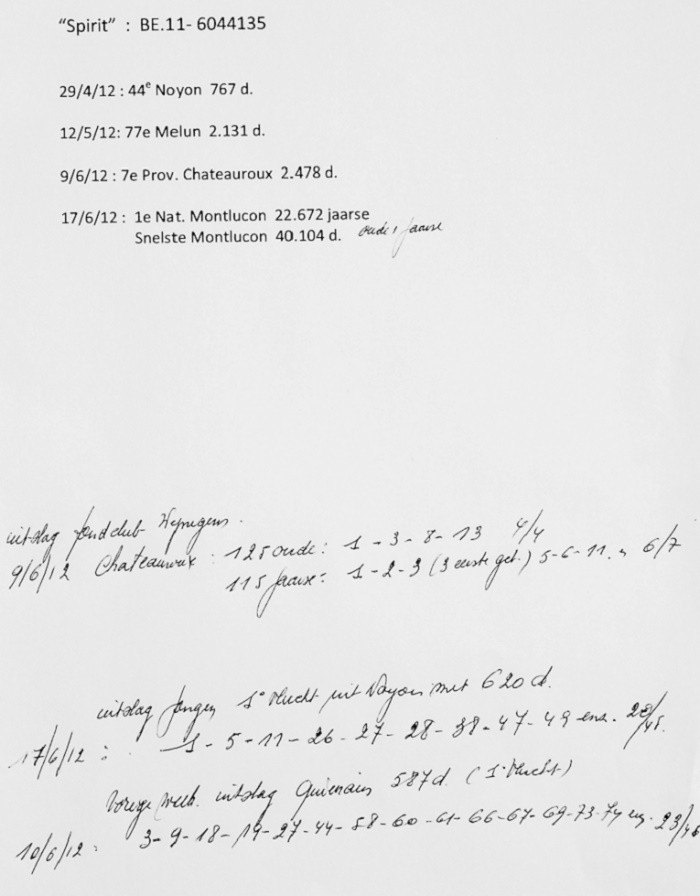 "Spirit" : BE.11- 6044135
29/4/12 : 44e Noyon 767 d.
12/5/12: 77e Melun 2.131 d.
9/6/12 : 7e Prov. Chateauroux 2.478 d.
17/6/12 : 1e Nat. Montlucon 22.672 jaarse
Snelste Montlucon 40.104 d. oude, jaarse
uitslag fondclub
9/6/12 Chateauroux : 125 oude: 1 - 3 - 8 - 13 4/4
115 jaarse: 1 - 2 - 3 (3 eerste get.) 5-6-11. 6/7
uitslag jongen 1e vlucht uit Noyon met 620 d.
17/6/12 : 1 - 5 - 11 - 26 - 27 - 28 - 38 - 47 - 49 enz. 28/45.
Vorige week. uitslag Quievrain 587 d. (1e vlucht)
10/6/12 : 3- 9 -18 - 19 - 27 - 44 - 58 - 60 - 61 - 66 - 67 - 69 - 73 - 74 enz. 23/46